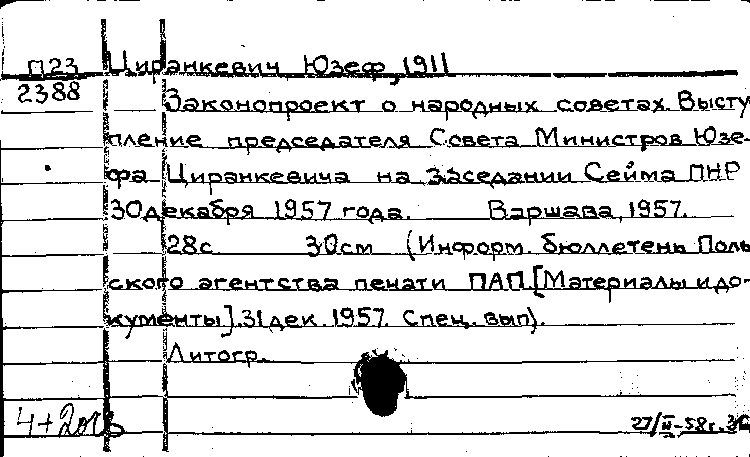 П23 Циранкевич Юзеф, 1911
2388 Законопроект о народных советах. Высту
пление председателя Совета Министров Юзе-
фа Циранкевича на заседании Сейма ПНР
30 декабря 1957 года. Варшава, 1957.
28с 30см (Информ. бюллетень Поль
ского агентства печати ПАП. [Материалы и до-
кументы]. 31 дек. 1957. Спец. вып).
Литогр.
27/III-58г.